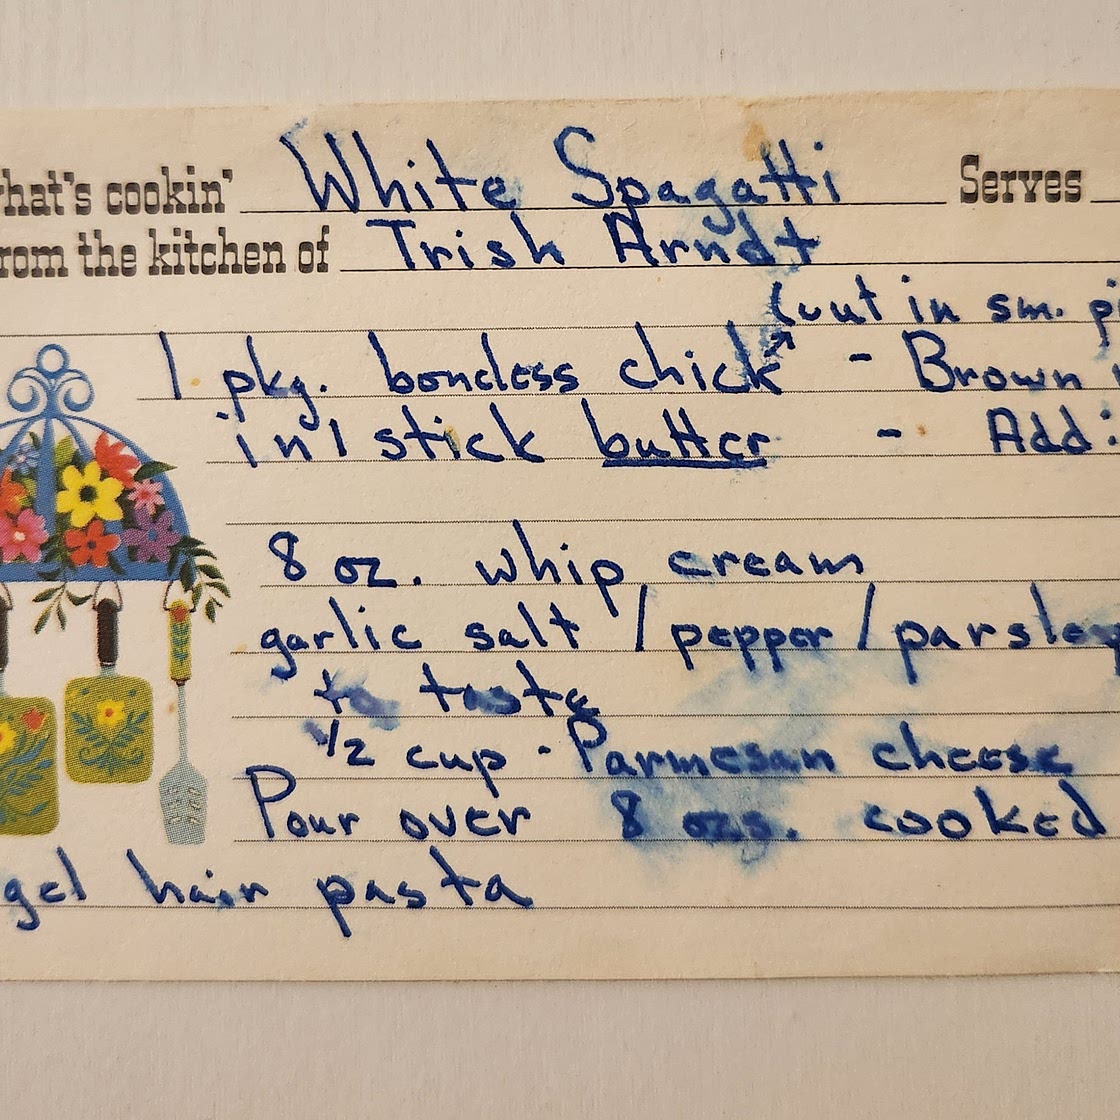 what's cookin' White Spagatti Serves
from the kitchen of Trish Arndt
(cut in sm.
1 pkg. boneless chick - Brown
in 1 stick butter - Add
8 oz. whip cream
garlic salt / pepper / parsley
to taste
1/2 cup - Parmesan cheese
Pour over 8 ozs. cooked
gel hair pasta